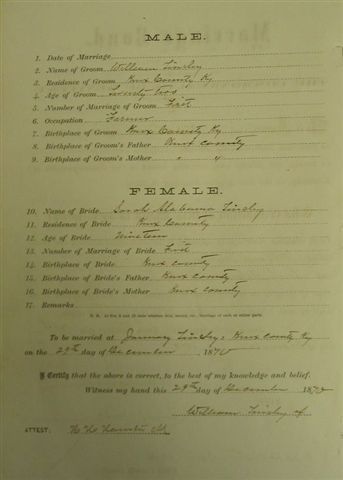 MALE.
1. Date of Marriage
2. Name of Groom William Tinsley
3. Residence of Groom Knox County Ky
4. Age of Groom Twenty two
5. Number of Marriage of Groom First
6. Occupation Farmer
7. Birthplace of Groom Knox County Ky
8. Birthplace of Groom's Father Knox County
9. Birthplace of Groom's Mother " "
FEMALE.
10. Name of Bride Sarah Alabama Tinsley
11. Residence of Bride Knox County
12. Age of Bride Nineteen
13. Number of Marriage of Bride First
14. Birthplace of Bride Knox County
15. Birthplace of Bride's Father Knox County
16. Birthplace of Bride's Mother Knox County
17. Remarks
To be married at Tinsley's Knox County Ky
on the 29th day of December 187
I Certify that the above is correct, to the best of my knowledge and belief.
Witness my hand this 29th day of December 187
William Tinsley
ATTEST: